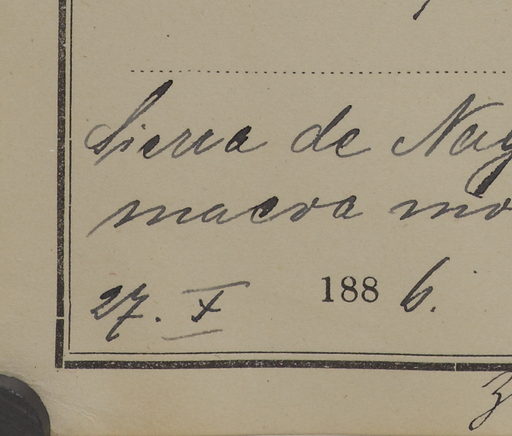 Sierra de Nag
macova mo
27. X 1886.
3